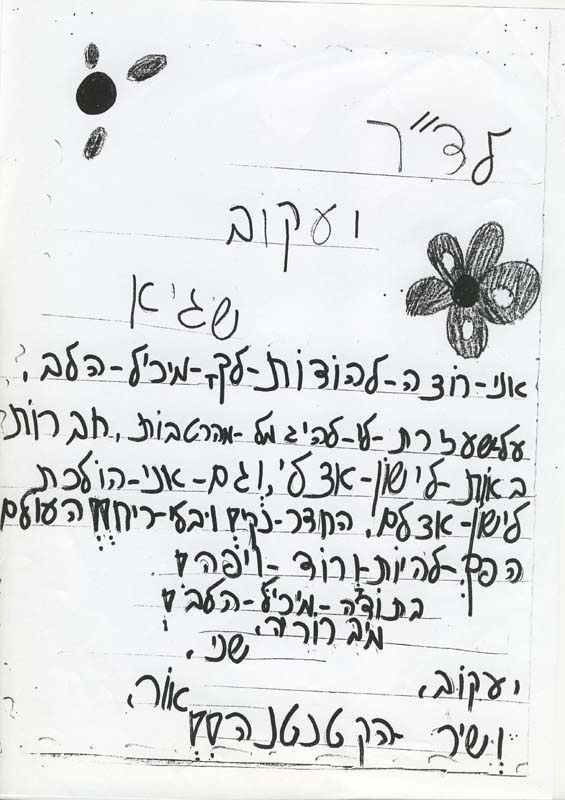 לד"ר
יעקוב
שגיא
אני-רוצה-להודות-לך-מיכיל-הלב.
על-שעזרת-לי-להיגמל-מהרטבות, חברות
באות-לישון-אצלי, וגם-אני-הולכת
לישון-אצלם. החדר-נקי ובעי-ריח העולם
הפך-להיות-ורוד-ויפה
בתודה-מיכיל-הלב
מיברוריה.
שני,
יעקוב,
אור,
ושיר-הקטנטנה